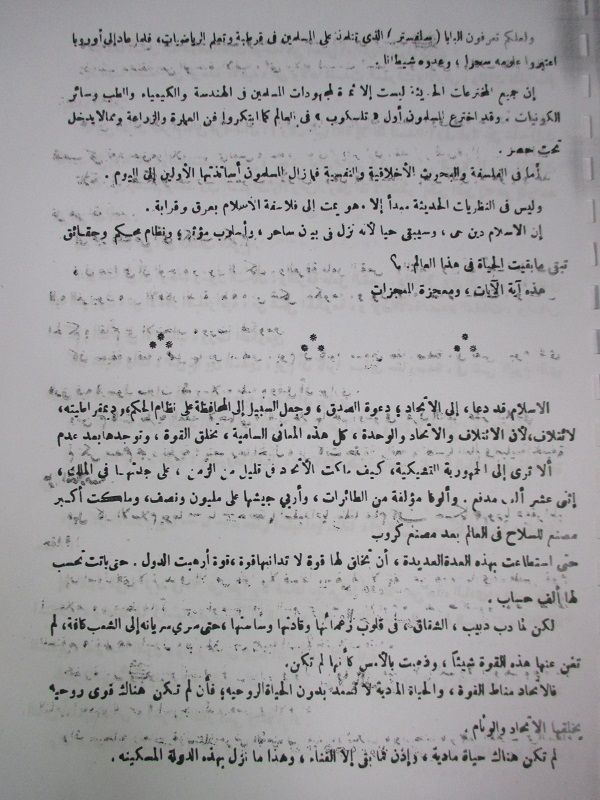 ولعلكم تعرفون البابا ( سلفستر ) الذى تتلمذ على المسلمين فى قرطبة وتعلم الرياضيات ، فلما عاد إلى أوروبا
اعتبروا علومه سحرا ، وعدوه شيطانا .
إن جميع المخترعات الحديثة ليست إلا ثمرة لمجهودات المسلمين فى الهندسة والكيمياء والطب وسائر
الكونيات . وقد اخترع المسلمون أول « تلسكوب » فى العالم كما ابتكروا فن العمارة والزراعة ومما لا يدخل
تحت حصر .
أما فى الفلسفة والبحوث الأخلاقية والنفسية فما زال المسلمون أساتذتها الأولين إلى اليوم .
وليس فى النظريات الحديثة مبدأ إلا ، هو يمت إلى فلاسفة الاسلام بعرق وقرابة .
إن الاسلام دين حى ، وسيبقى حيا لأنه نزل فى بيان ساحر ، وأسلوب مؤثر ، ونظام محكم وحقائق
تبقى ما بقيت الحياة فى هذا العالم . ؟
هذه آية الآيات ، ومعجزة المعجزات
الاسلام قد دعا ، إلى الاتحاد ، ودعوة الصدق ، وجعل السبيل إلى المحافظة على نظام الحكم ، وديمقراطيته ،
لائتلاف ، لأن الائتلاف والاتحاد والوحدة ، كل هذه المعانى السامية ، تخلق القوة ، وتوحدها بعد عدم
ألا ترى إلى الجمهورية التشيكية ، كيف ملكت الاتحاد فى قليل من الزمن ، على جدتها فى الملك ،
إثنى عشر ألف مدفع . وألوفا مؤلفة من الطائرات ، وأربى جيشها على مليون ونصف ، وملكت أكبر
مصنع للسلاح فى العالم بعد مصنع كروب
حتى استطاعت بهذه العدة العديدة ، أن تخلق لها قوة لا تدانيها قوة ، قوة أرهبت الدول . حتى باتت تحسب
لها ألف حساب .
لكن لما دب دبيب ، الشقاق ، فى قلوب زعمائها وقادتها وساستها ، حتى سرى سريانه إلى الشعب كافة ، لم
تغن عنها هذه القوة شيئا ، وذهبت بالأمس كأنها لم تكن .
فالاتحاد مناط القوة ، والحياة المادية لا تسعد بدون الحياة الروحيه ؛ فأن لم تكن هناك قوى روحيه
يخلقها الاتحاد والوئام .
لم تكن هناك حياة مادية ، وإذن فما بقى إلا الفناء ، وهذا ما نزل بهذه الدولة المسكينه .